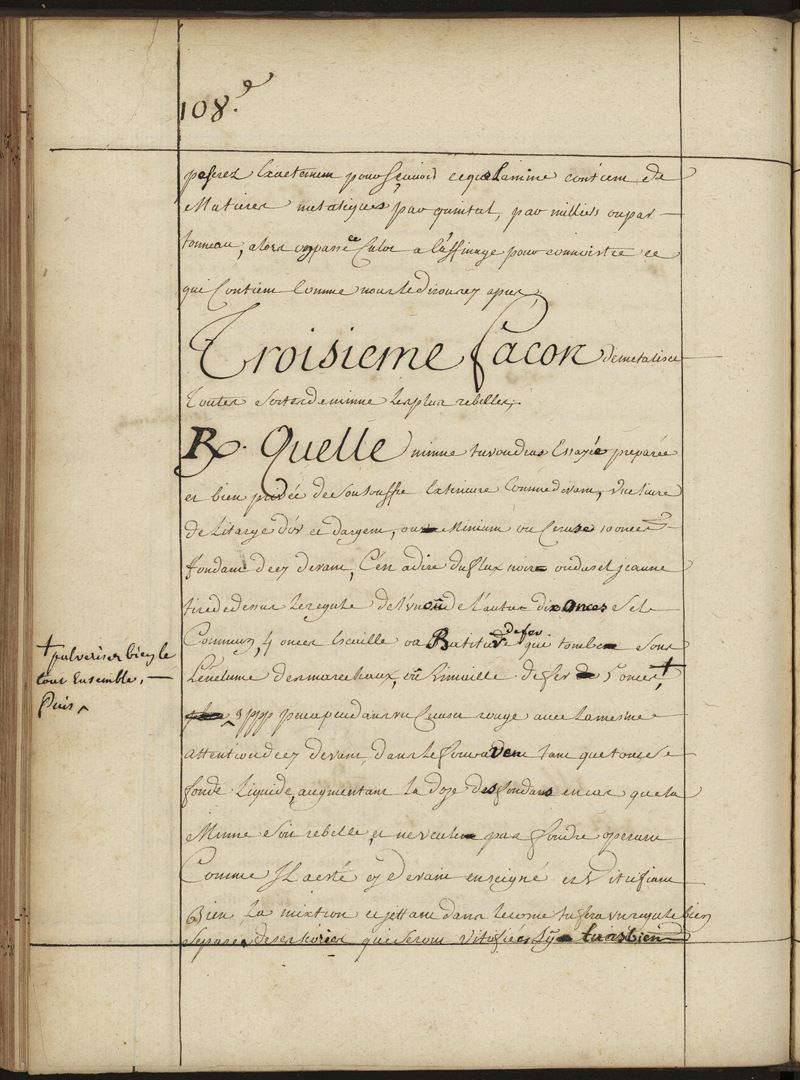 108.e
peserez Exactemen pour sçavoir ce que la mine contien de
Matieres metaliques par quintal, par milliers ou par
tonneau, alors on passe ce Culot a l'affinage pour connoistre ce
qui Contien Comme nous le dirons cy apres;
Troisieme facon de metaliser
toutes sortes de minne les plus rebelles;.
R. Quelle minne tu voudras Essayée preparée
et bien privée de son souffre Exterieure Comme devant, une livre
de Litarge d'or et d'argent, ou Minium ou Ceruse 10 onces
fondant de cy devant, C'en a dire du flux noir ou du sel jeaune
tiré dedessus le regule de l'un ou de l'autre dix onces sel
Commun, 4 onces Escaille ou Batitur de fer qui tombe sous
l'enclume des marechaux, ou Limaille de fer 5 onces, +
+ pulveriser bien le
tout Ensemble, —
Puis ^
peu a peu dans un Creuset rouge avec la mesme
attention de cy devant, dans le four a vent tant que tout se
fonde Liquide, augmentant la doze des fondans en cas que la
Minne soit rebelle, et ne veule pas fondre operant
Comme Il a esté cy devant enseigné et Vitrifiant
Bien la mixtion et jettant dans le cone tu fera un regule bien
separé de ses scories qui seront vitrifiées tres bien